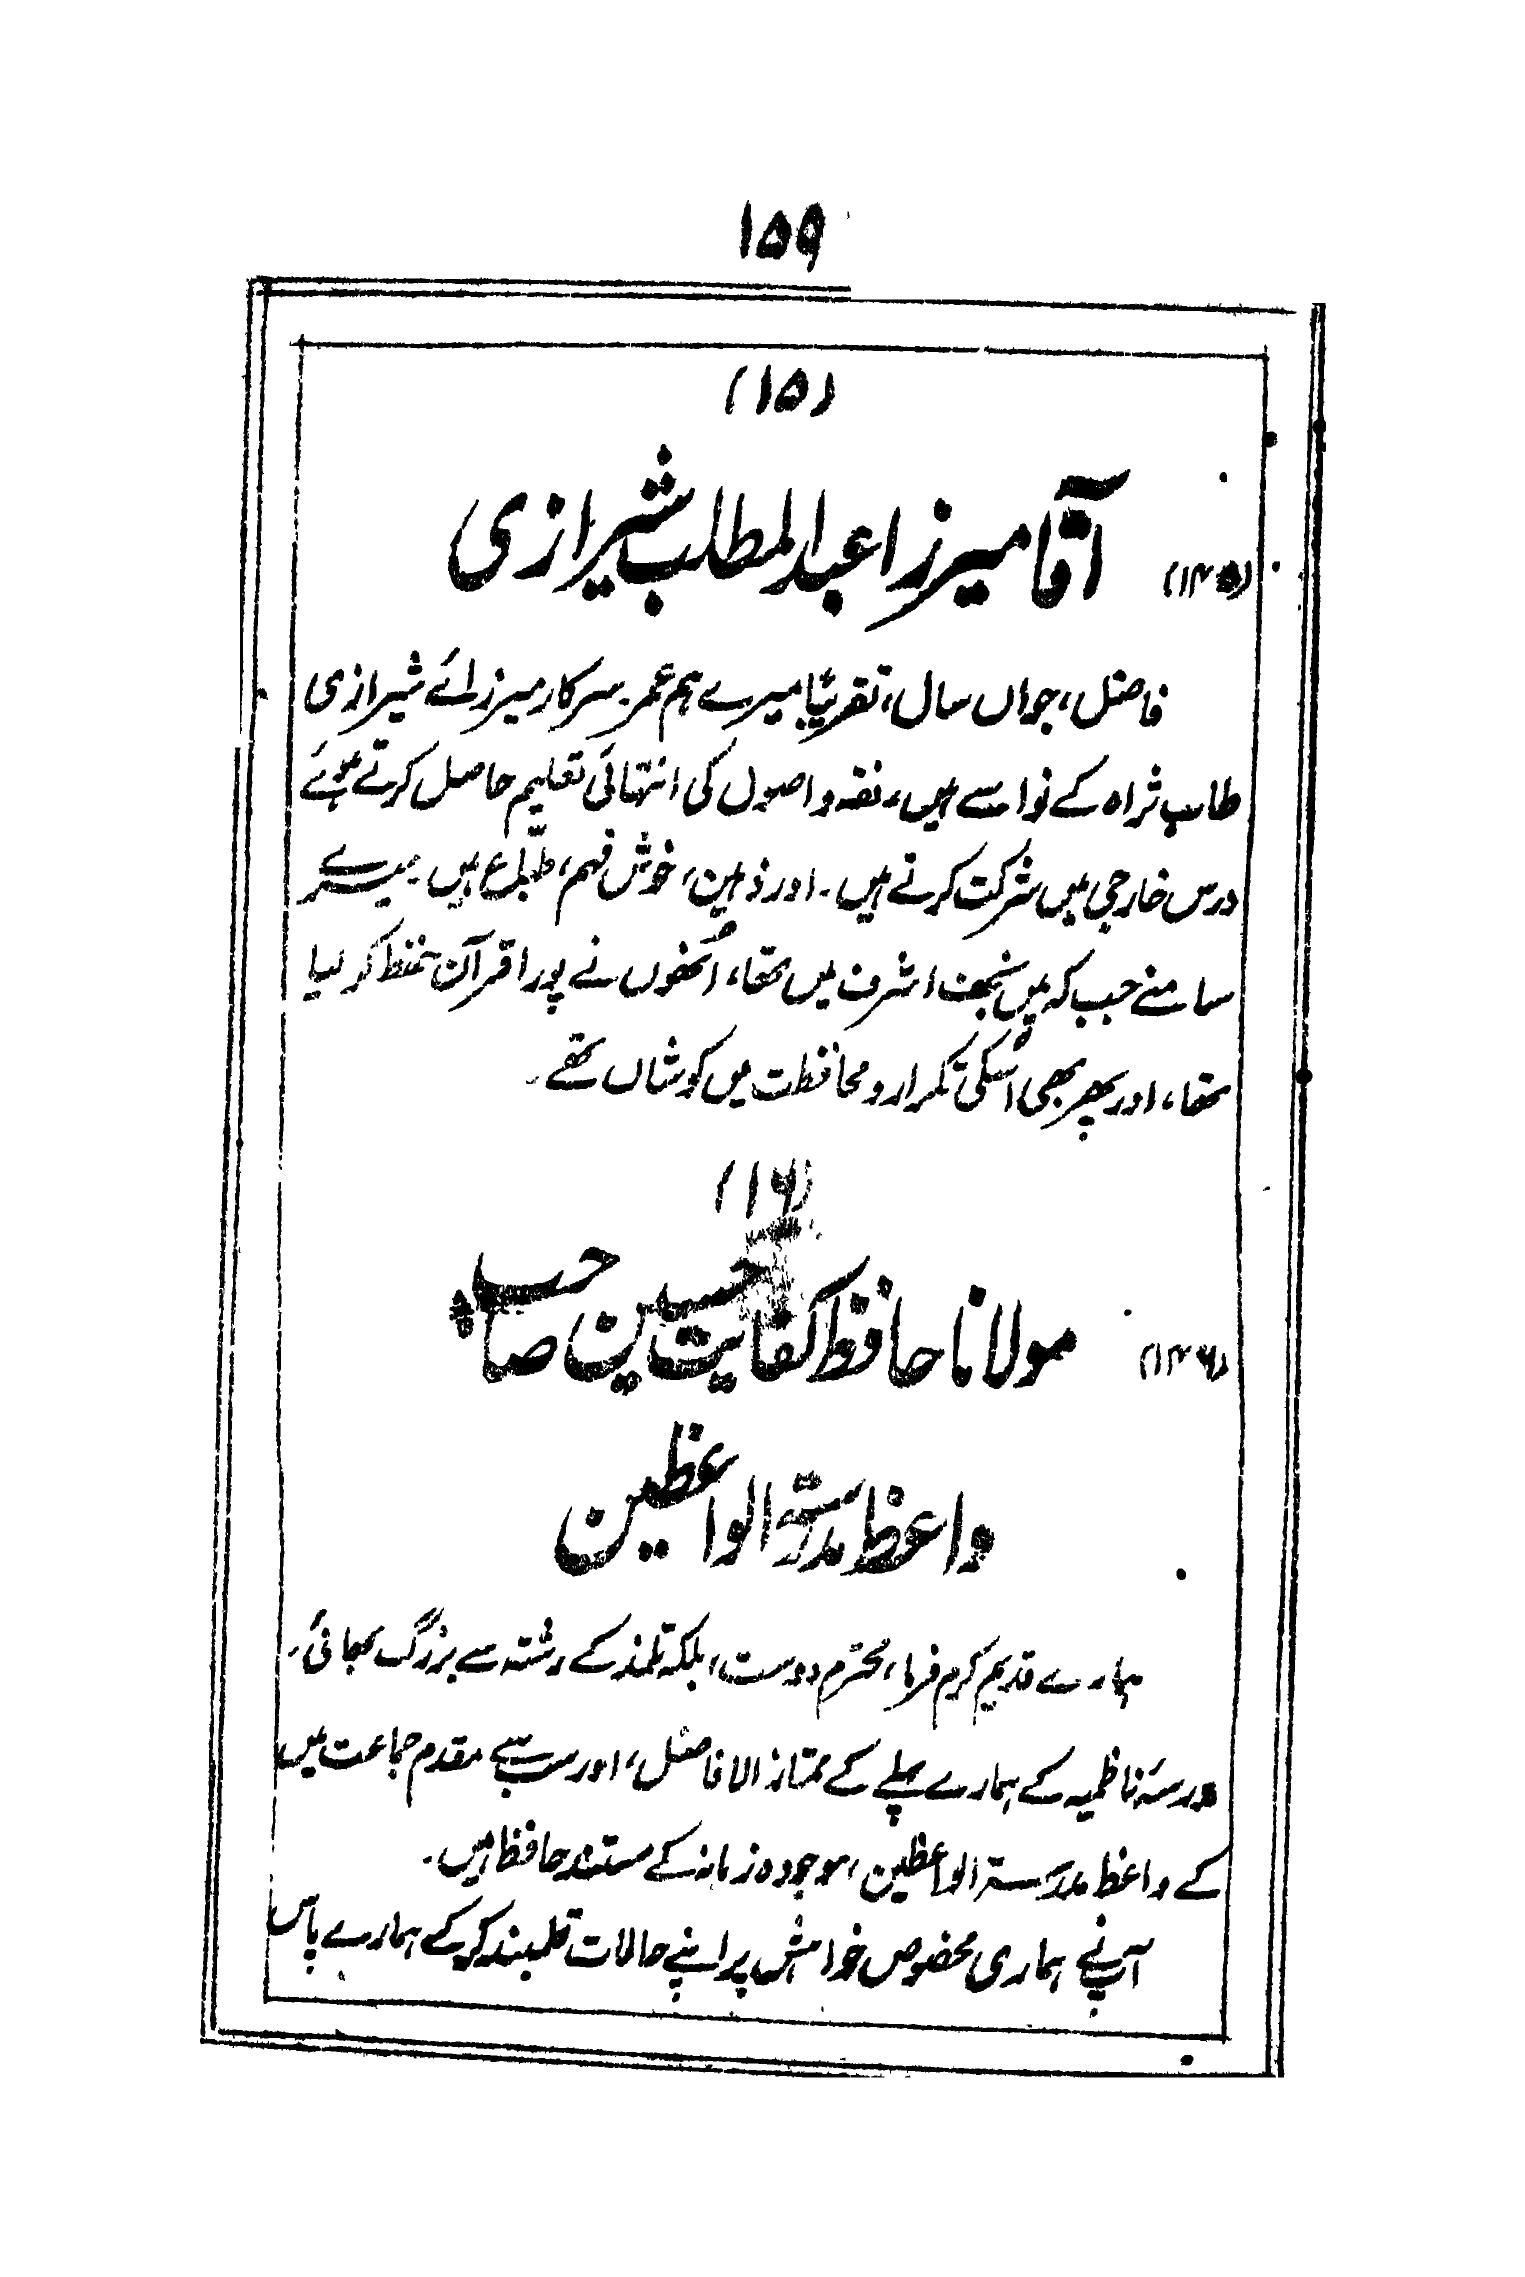 ۱۵۹
(۱۵)
(۱۴۵) آقا میرزا عبد المطلب شیرازی
فاضل، جواں سال، تقریباً میرے ہم عمر۔ سرکار میرزائے شیرازی
طاب ثراہ کے نواسے ہیں، فقہ و اصول کی انتہائی تعلیم حاصل کرتے ہوئے
درس خارجی میں شرکت کرتے ہیں۔ اور ذہین، خوش فہم، طبّاع ہیں۔ میرے
سامنے جب کہ میں نجف اشرف میں تھا، اُنھوں نے پورا قرآن حفظ کر لیا
تھا، اور پھر بھی اسکی تکرار و محافظت میں کوشاں تھے۔
(۱۶)
(۱۴۶) مولانا حافظ کفایت حسین صاحب
واعظ مدرسۃ الواعظین
ہمارے قدیم کرم فرما، محترم دوست، بلکہ تلمذ کے رشتہ سے بزرگ بھائی۔
مدرسۂ ناظمیہ کے ہمارے پہلے کے ممتاز الافاضل، اور سب سے مقدم جماعت میں
کے واعظ مدرسۃ الواعظین، موجودہ زمانہ کے مستند حافظ ہیں۔
آپ نے ہماری مخصوص خواہش پر اپنے حالات قلمبند کر کے ہمارے پاس